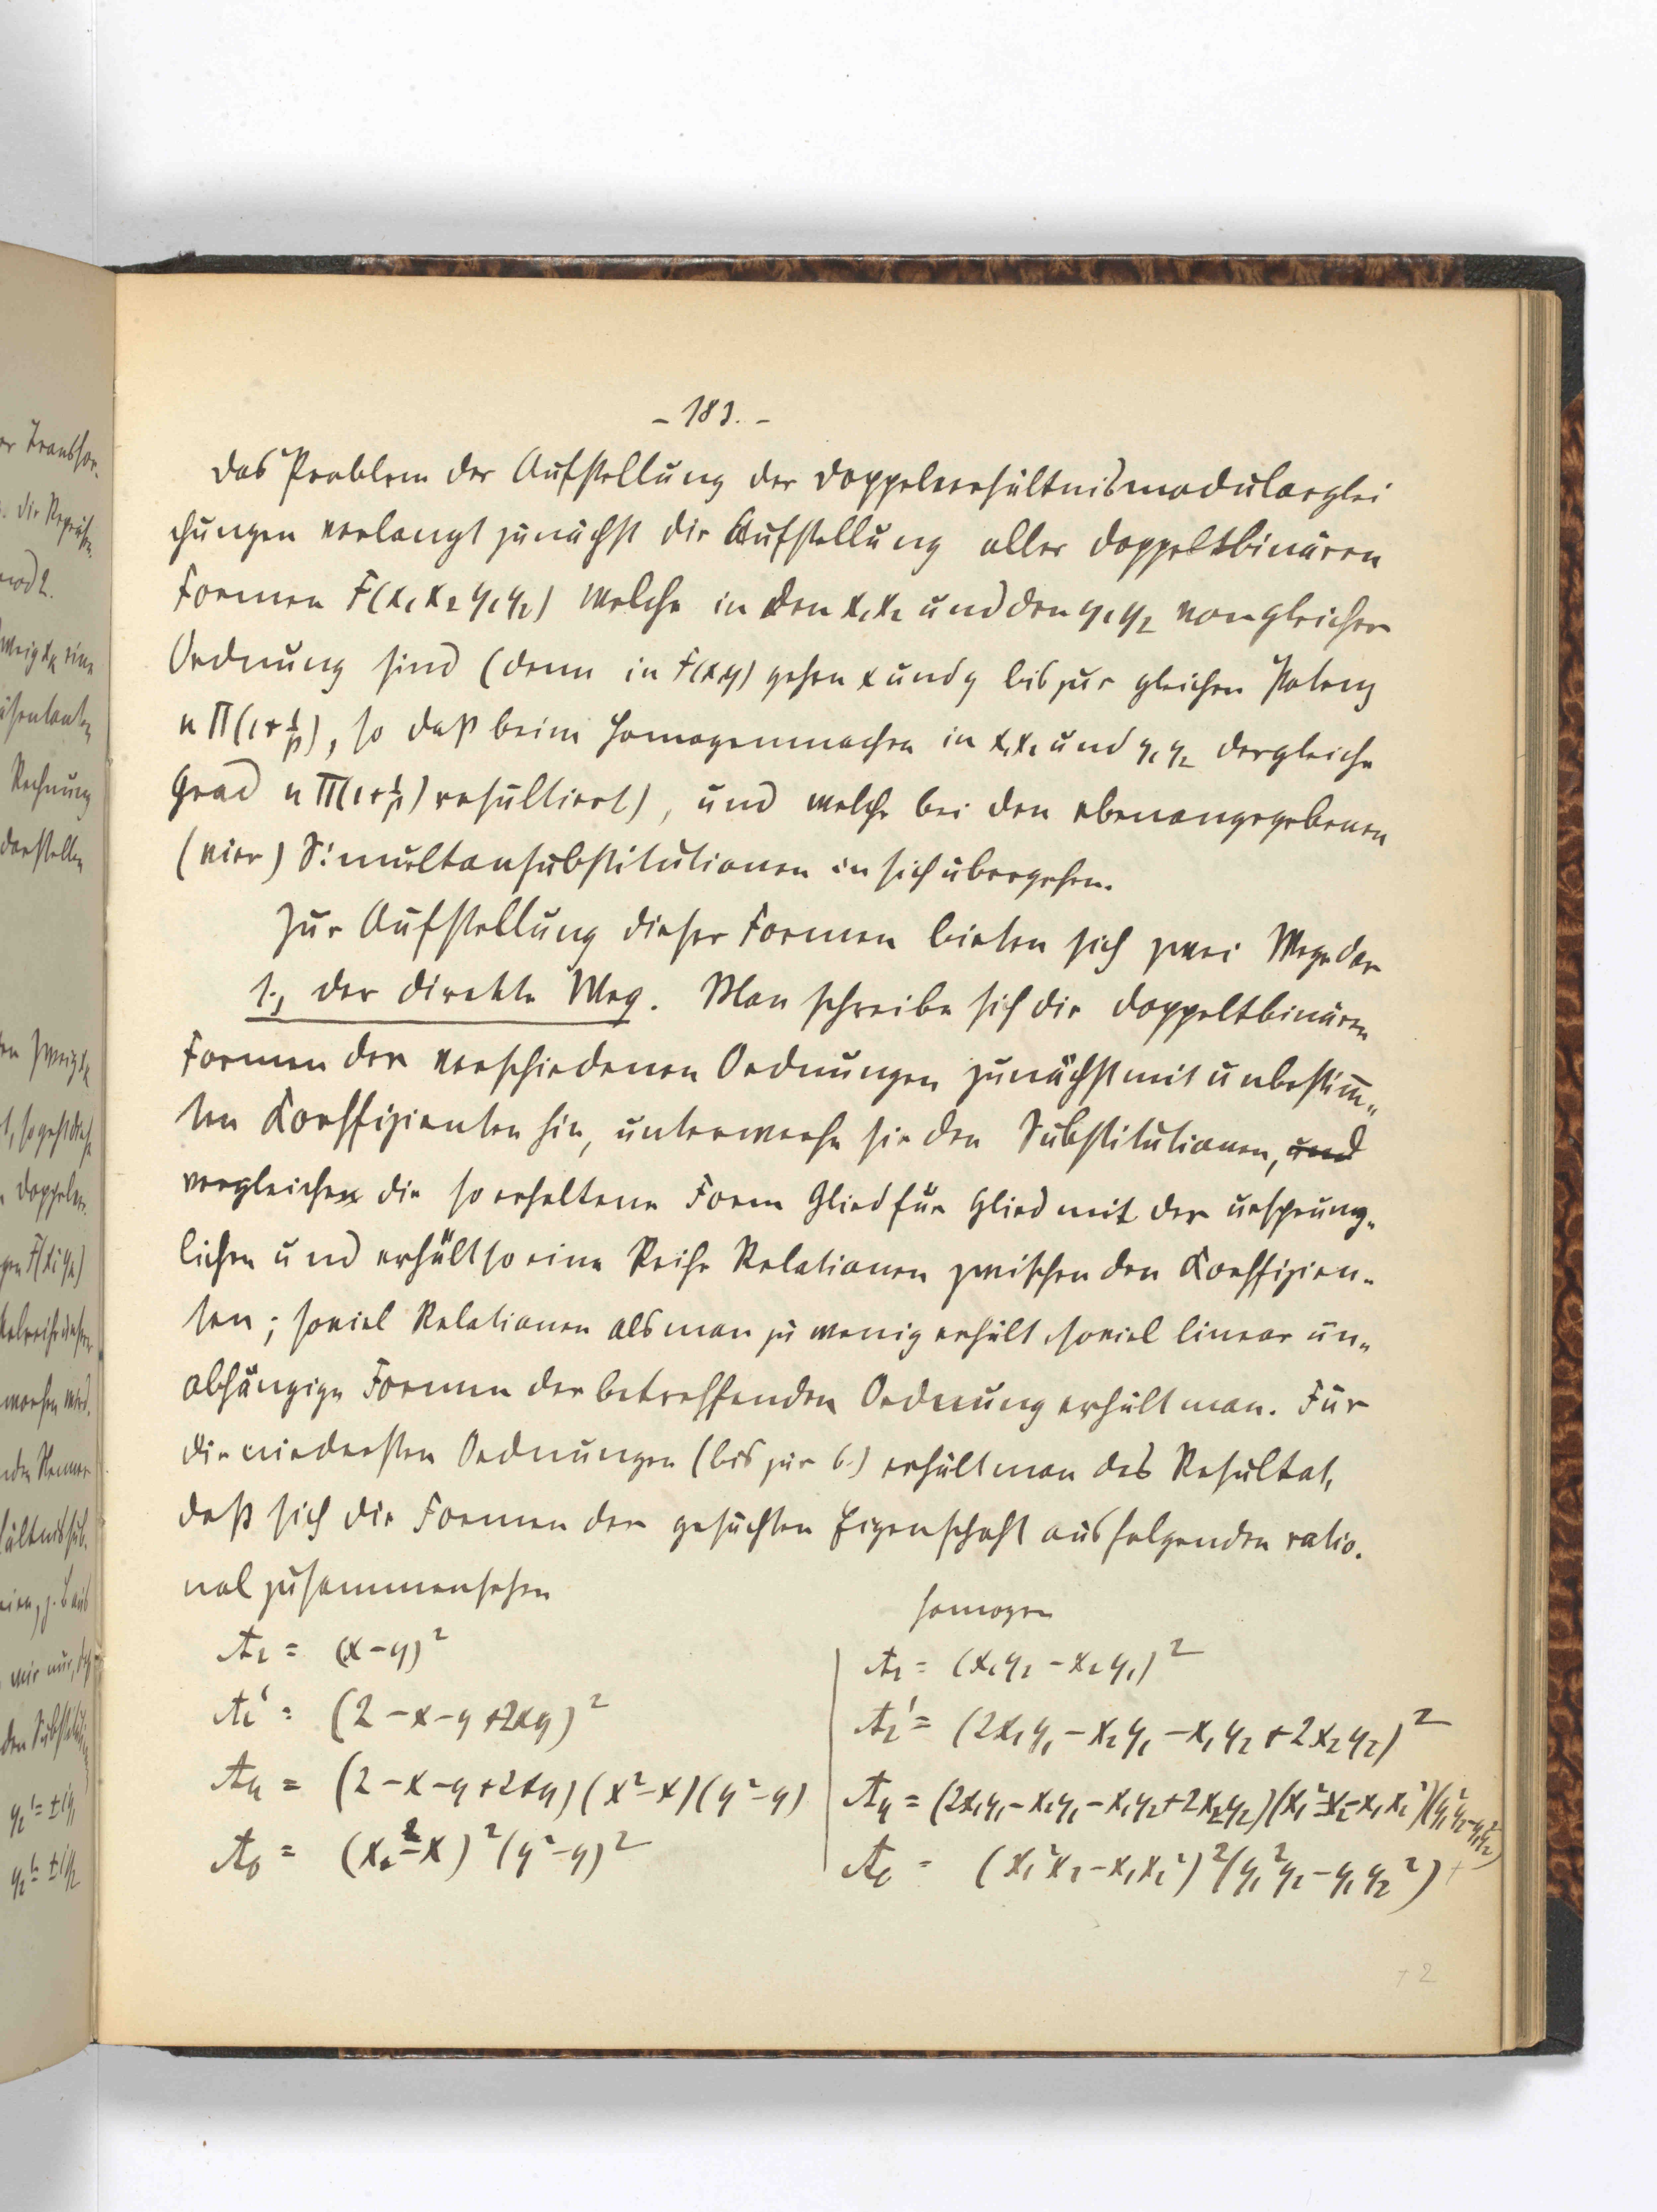 - 183. -
Das Problem der Aufstellung der Doppelverhältnismodularglei
chungen verlangt zunächst die Aufstellung aller doppeltbinären
Formen F(x₁x₂y₁y₂) welche in den x₁x₂ und den y₁y₂ von gleicher
Ordnung sind (denn in F(xy) gehen x und y bis zur gleichen Potenz
n∏(1+1/p), so daß beim Homogenmachen in x₁x₂ und y₁y₂ der gleiche
Grad n∏(1+1/p) resultiert), und welche bei den ebenangegebenen
(vier) Simultansubstitutionen in sich übergehen.
Zur Aufstellung dieser Formen bieten sich zwei Wege dar
1., der direkte Weg. Man schreibe sich die doppeltbinären
Formen der verschiedenen Ordnungen zunächst mit unbestim̄-
ten Koeffizienten hin, unterwerfe sie den Substitutionen, und
vergleiche die so erhaltene Form Glied für Glied mit der ursprüng-
lichen und erhält so eine Reihe Relationen zwischen den Koeffizien-
ten; soviel Relationen als man zu wenig erhält, soviel linear un-
abhängige Formen der betreffenden Ordnung erhält man. Für
die niedersten Ordnungen (bis zur 6.) erhält man das Resultat,
daß sich die Formen der gesuchten Eigenschaft aus folgenden ratio-
nal zusammensetzen
homogen
A₂ = (x-y)²
A₂ = (x₁y₂ - x₂y₁)²
A₂' = (2-x-y+2xy)²
A₂' = (2x₁y₁ - x₂y₁ - x₁y₂ + 2x₂y₂)²
A₄ = (2-x-y+2xy)(x²-x)(y²-y)
A₄ = (2x₁y₁-x₂y₁-x₁y₂+2x₂y₂)(x₁²x₂-x₁x₂²)(y₁²y₂-y₁y₂²)
A₆ = (x²-x)²(y²-y)²
A₆ = (x₁²x₂-x₁x₂²)²(y₁²y₂-y₁y₂²)
+2